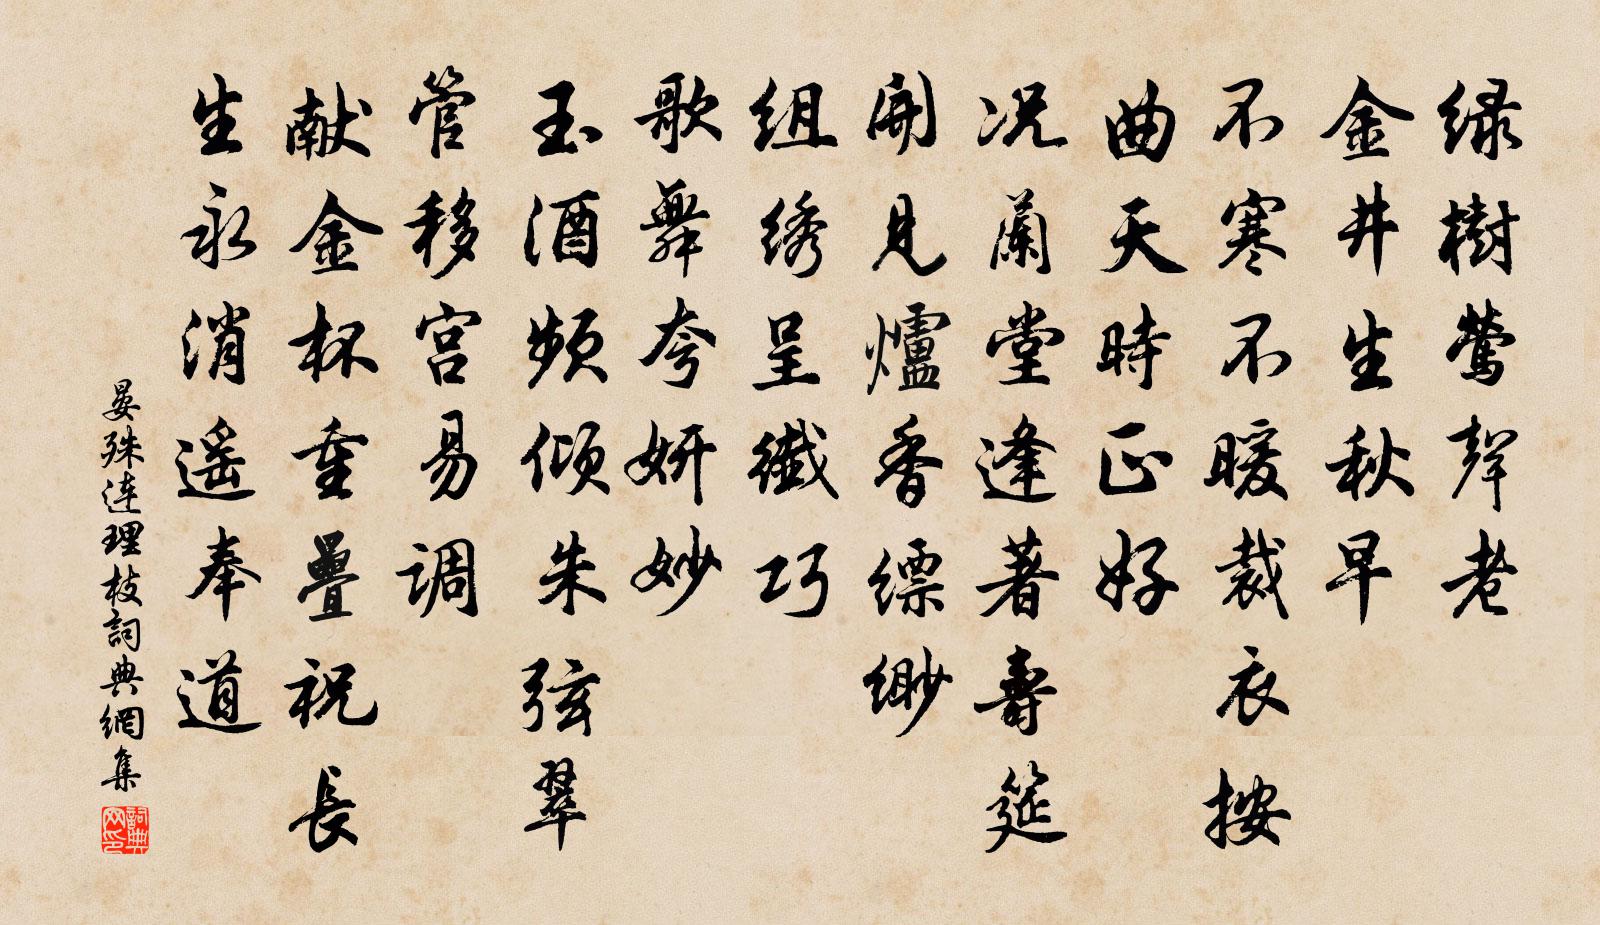 緑樹莺聲老
金井生秋早
不寒不暖裁衣按
曲天時正好
况蘭堂逢著壽筵
開見爐香缥缈
组绣呈纖巧
歌舞夸妍妙
玉酒频倾朱弦翠
管移宫易调
献金杯重疊祝長
生永消遥奉道
晏殊连理枝詞典網集
詞典网印